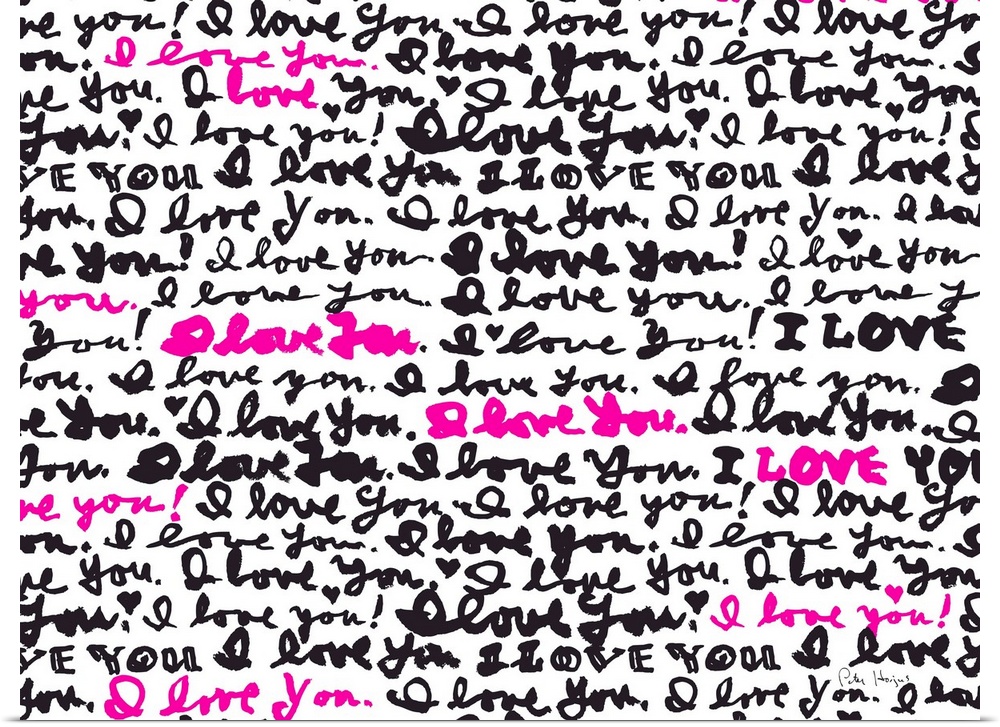 ve you! I love You. I love You. I love
on. I love You. I love You. I love You.
ve You. I love You. I love You. I love You.
You. I love you! I love You. I love you!
VE YOU I love You I LOVE YOU I love y
You. I love You. I love You. I love You. I lo
ve You! I love You. I love You! I love You
you. I love You. I love you. I love y
You! I love You. I love You! I LOVE
You. I love you. I love You. I love you. I
ve You. I love You. I love You. I love You. I
You. I love You. I love You. I LOVE YOU
ve you! I love You. I love You. I love Yo
on. I love You. I love You. I love You. I
ve You. I love You. I love You. I love You.
You. I love you! I love You. I love you!
VE YOU I love You I LOVE YOU I love y
You. I love You. I love You. I love You. I lo
Peter Horjus